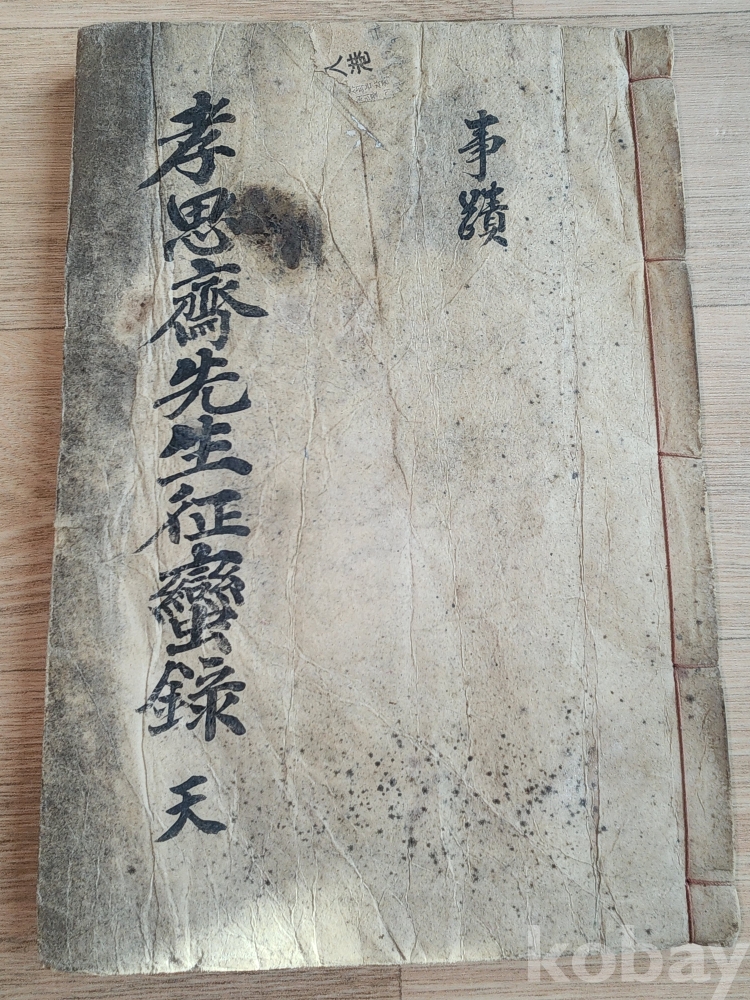 事蹟
孝思齋先生征蠻錄 天
kobay